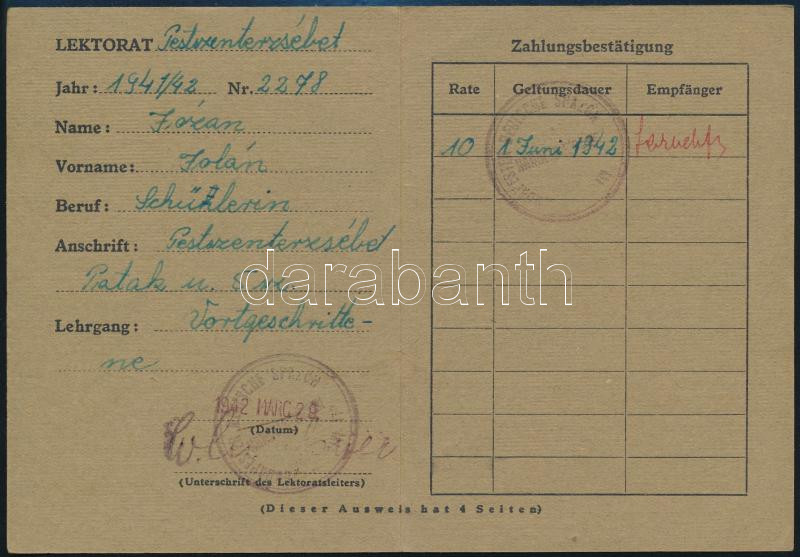 LEKTORAT Pestszenterzsébet
Jahr: 1941/42 Nr. 2278
Name: Józan
Vorname: Jolán
Beruf: Schühlerin
Anschrift: Pestszenterzsébet
Patak u.
Lehrgang: Vortgeschritte-
ne
1942 MARC 28.
(Datum)
(Unterschrift des Lektoratsleiters)
Zahlungsbestätigung
Rate Geltungsdauer Empfänger
10 1 Juni 1942
(Dieser Ausweis hat 4 Seiten)
darabanth